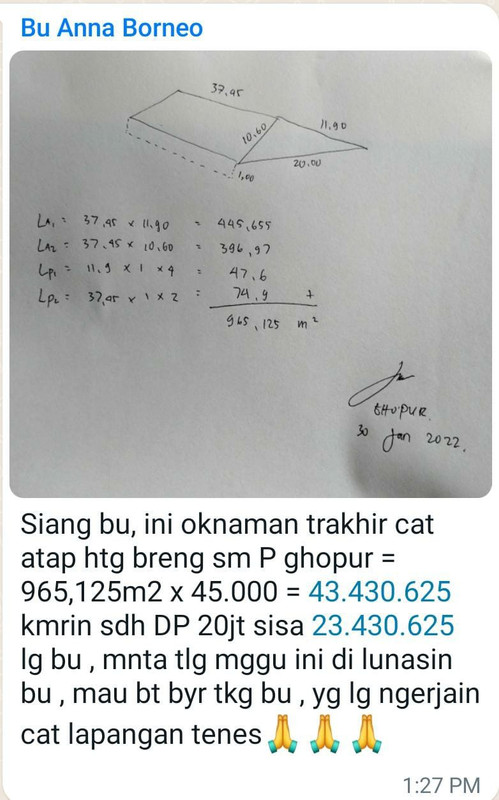 Bu Anna Borneo
37.45
11.90
10.60
20.00
1,00
LA1 = 37,45 x 11,90 = 445,655
LA2 = 37.45 x 10,60 = 396,97
Lp1 = 11,9 x 1 x 4 = 47,6
Lp2 = 37,45 x 1 x 2 = 74,9 +
965,125 m²
GHOPUR.
30 Jan 2022.
Siang bu, ini oknaman trakhir cat
atap htg breng sm P ghopur =
965,125m2 x 45.000 = 43.430.625
kmrin sdh DP 20jt sisa 23.430.625
lg bu , mnta tlg mggu ini di lunasin
bu , mau bt byr tkg bu , yg lg ngerjain
cat lapangan tenes🙏 🙏 🙏
1:27 PM